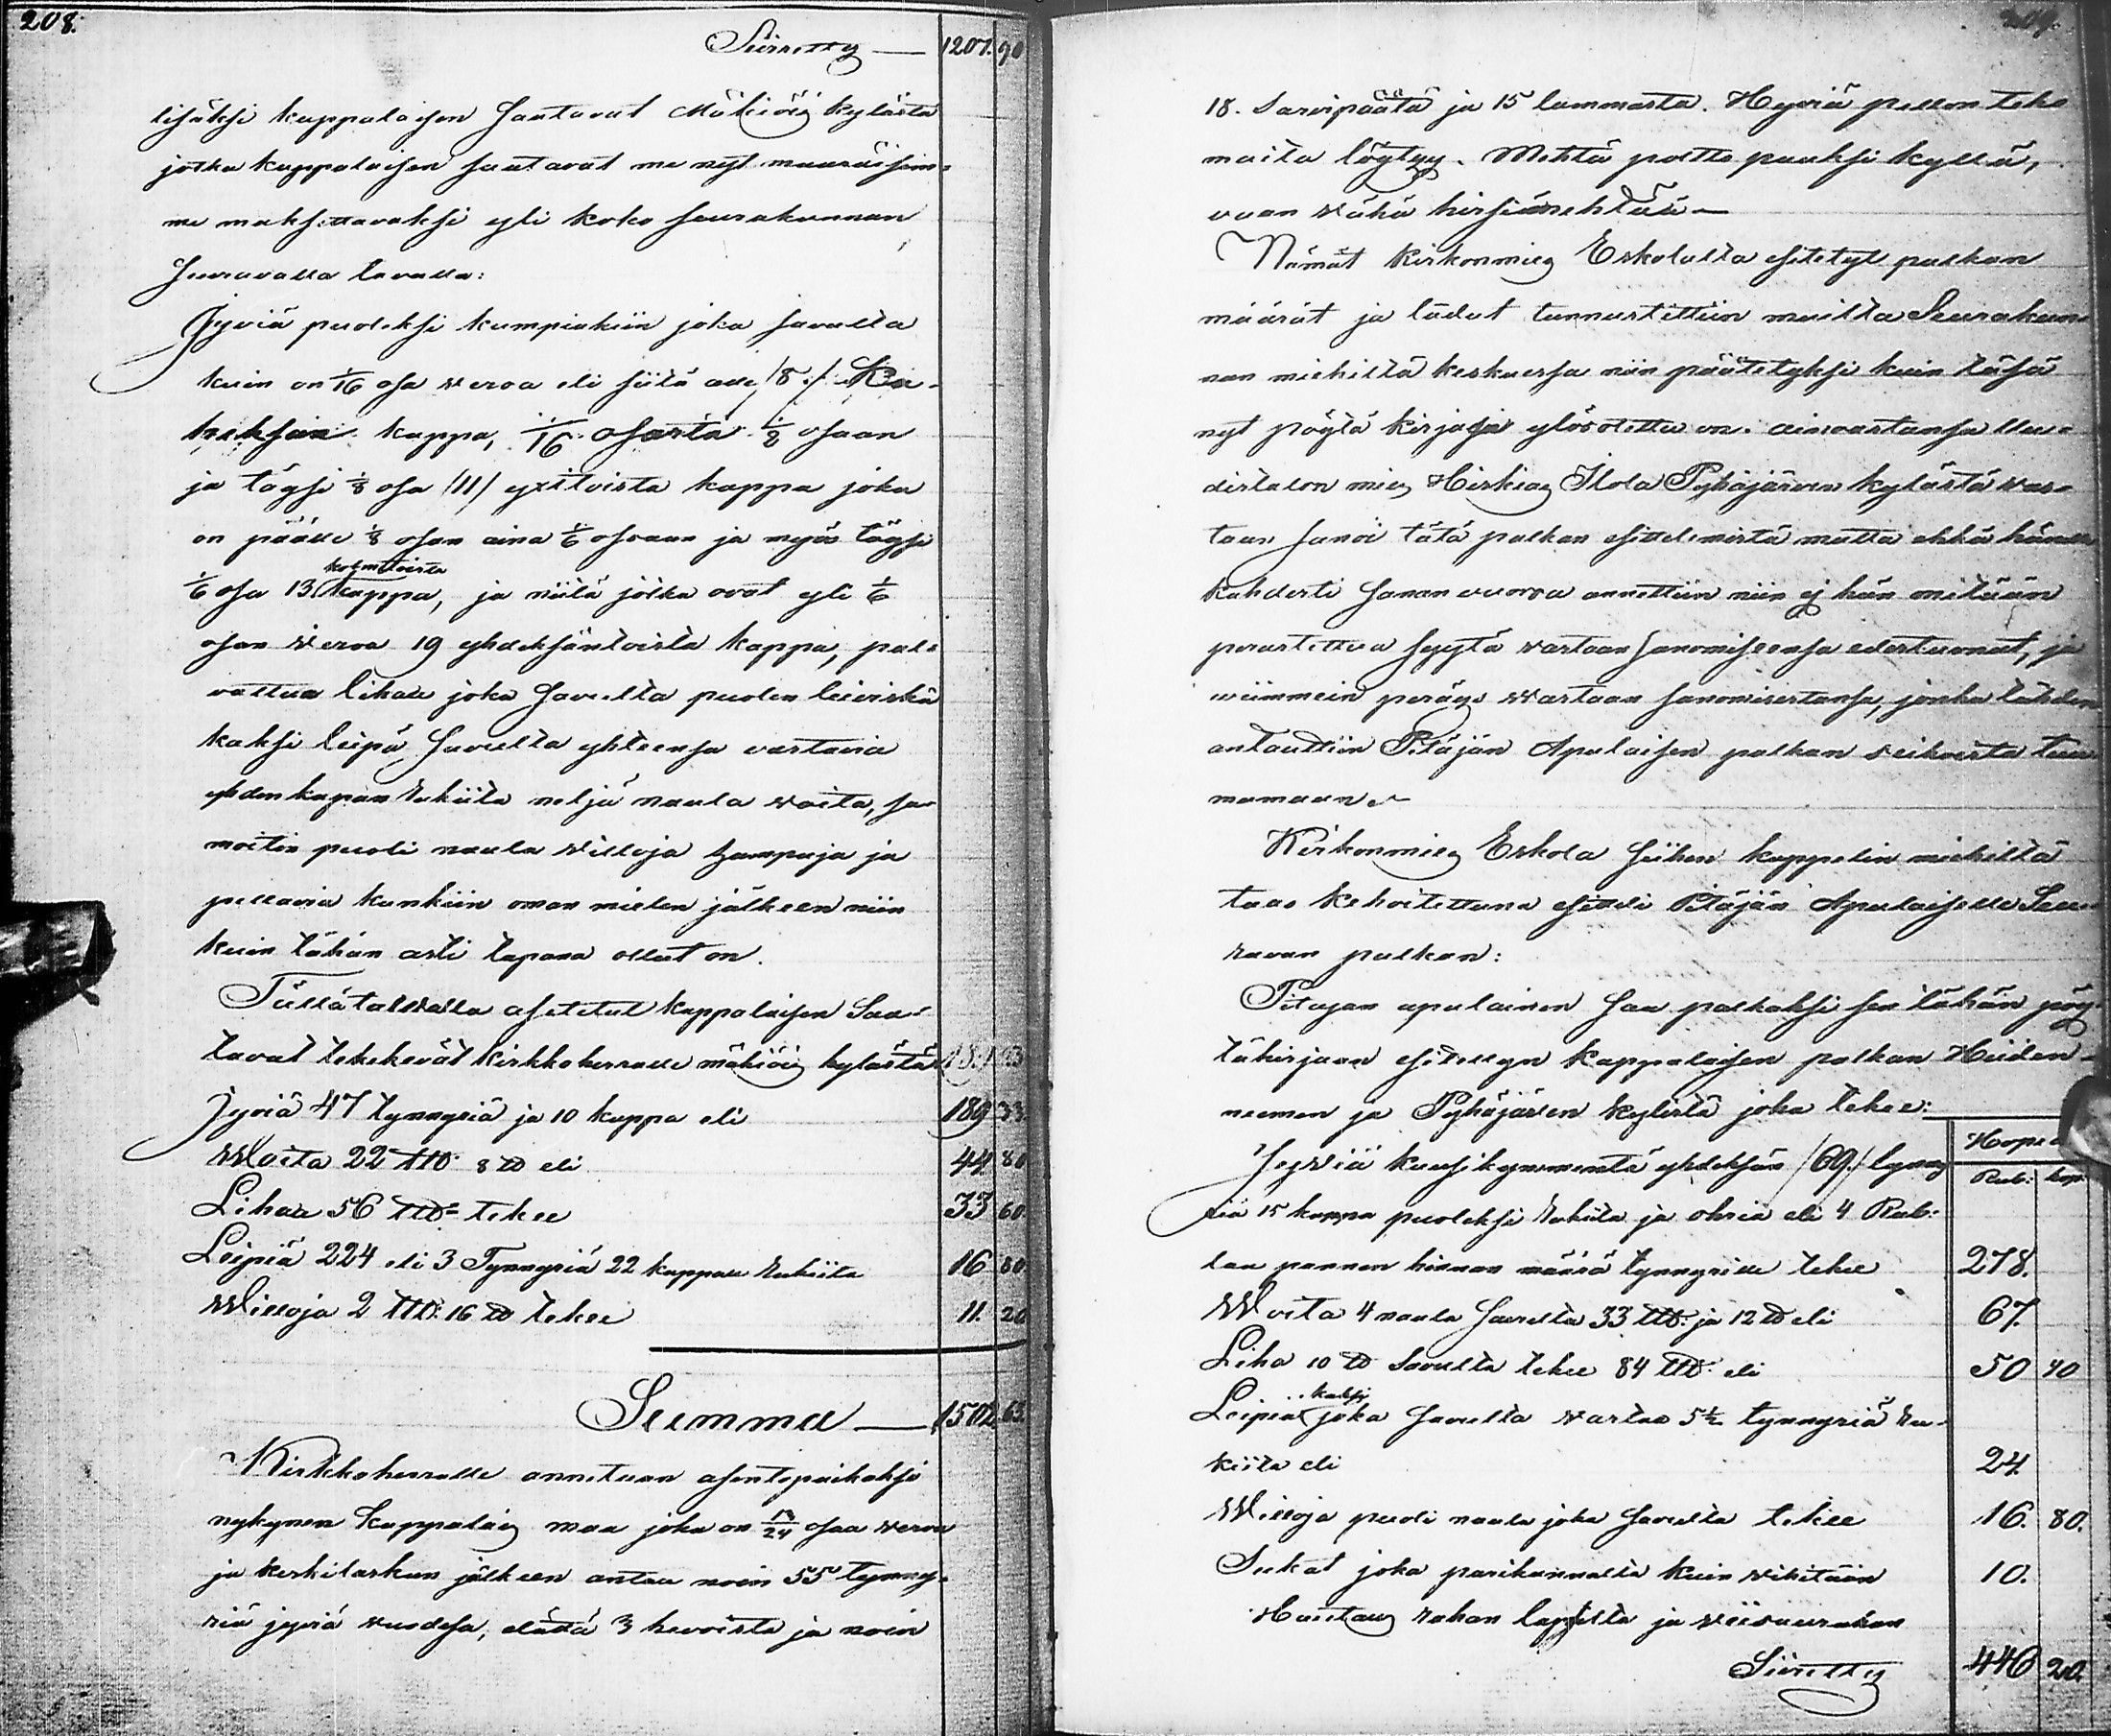 208.
Siirretty — 1207. 90
lisäksi kappalaisen Saatavat Mäkiöis kylästä
jotka kappalaisen saatavat me nyt määräisim-
me maksettavaksi yli koko seurakunnan
seuraavalla tavalla:
Jyviä puoleksi kumpiakiin joka savulta
kuin on 1/16 osa veroa eli siitä alle /8./ Ka-
heksan kappa, 1/16 osasta 1/8 osaan
ja täysi 1/8 osa /11/ yxitoista kappa joka
on päälle 1/8 osan aina 1/6 osaan ja myös täysi
1/6 osa 13 kolmetoista kappa, ja niitä jotka ovat yli 1/6
osan veroa 19 yhdeksäntoista kappa, pal-
vattua lihaa joka savulta puolen leiviskä
kaksi leipä savulta yhteensä vastavia
yhden kapan rukiita neljä naula voita, sa-
moiten puoli naula villoja hampuja ja
pellavia kunkiin oman mielen jälkeen niin
kuin tähän asti tapana ollut on.
Tällä tavalla asetetut kappalaisen Saa-
tavat tekekevät kirkkoherralle mäkiöis kylästä
Jyviä 47 tynnyriä ja 10 kappa eli 189 33.
Woita 22 LW 8 W eli 44. 80
Lihaa 56 LW tekee 33 60.
Leipiä 224 eli 3 Tynnyriä 22 kappaa rukiita 16 80.
Willoja 2 LW 16 W tekee 11. 20
Summa — 1502 63.
Kirkkoherralle annetaan asentopaikaksi
nykynen kappalais maa joka on 13/24 osaa veroa
ja keskilaskun jälkeen antaa noin 55 tynny-
riä jyviä vuodesa, elättä 3 hevoista ja noin
209.
18. Sarvipäätä ja 15 lammasta. Hyviä pellon teko
maita löytyy. Mehtä poltto puuksi kyllä,
vaan vähä hirsimehtää —
Nämät kirkonmies Eskolalta esitetyt palkan
määrät ja laadut tunnustettiin muilta Seurakun-
nan miehiltä keskuessa niin päätetyksi kuin täsä
nyt pöytä kirjasa ylösotettu on. ainoastansa Uu-
distalon mies Hiskias Ilola Pyhäjärven kylästä vas-
taan sanoi tätä palkan esittelemistä mutta ehkä hänelle
kahdesti sanan vuoroa annettiin niin ej hän mitään
perustettua syytä vastaan sanomiseensa edestuonut, ja
viimmein peräys vastaan sanomisestansa, jonka tähden
antauttiin Pitäjän Apulaisen palkan seikoista tuu-
mamaan.
Kirkonmies Eskola siihen kappelin miehiltä
taas kehoitettuna esitteli Pitäjän Apulaiselle Seu-
ravan palkan:
Pitäjän apulainen saa palkaksi sen tähän pöy-
täkirjaan esitellyn kappalaisen palkan Hiiden-
niemen ja Pyhäjärven kylistä joka tekee:
Hopea
Rub: kop.
Jyviä kuusikymmentä yhdeksän /69./ tynny
riä 15 kappa puoleksi rukiita ja ohria eli 4 Rub:
laa pannen hinnan määrä tynnyrille tekee 278.
Woita 4 naula savulta 33 LW ja 12 W eli 67.
Liha 10 W savulta tekee 84 LW eli 50 40
Leipiä kaksi joka savulta vastaa 5½ tynnyriä ru-
kiita eli 24.
Willoja puoli naula joka savulta tekee 16. 80.
Sukat joka parikunnalta kuin vihitään 10.
Hautaus rahan lapsilta ja
Siirretty 446 20.